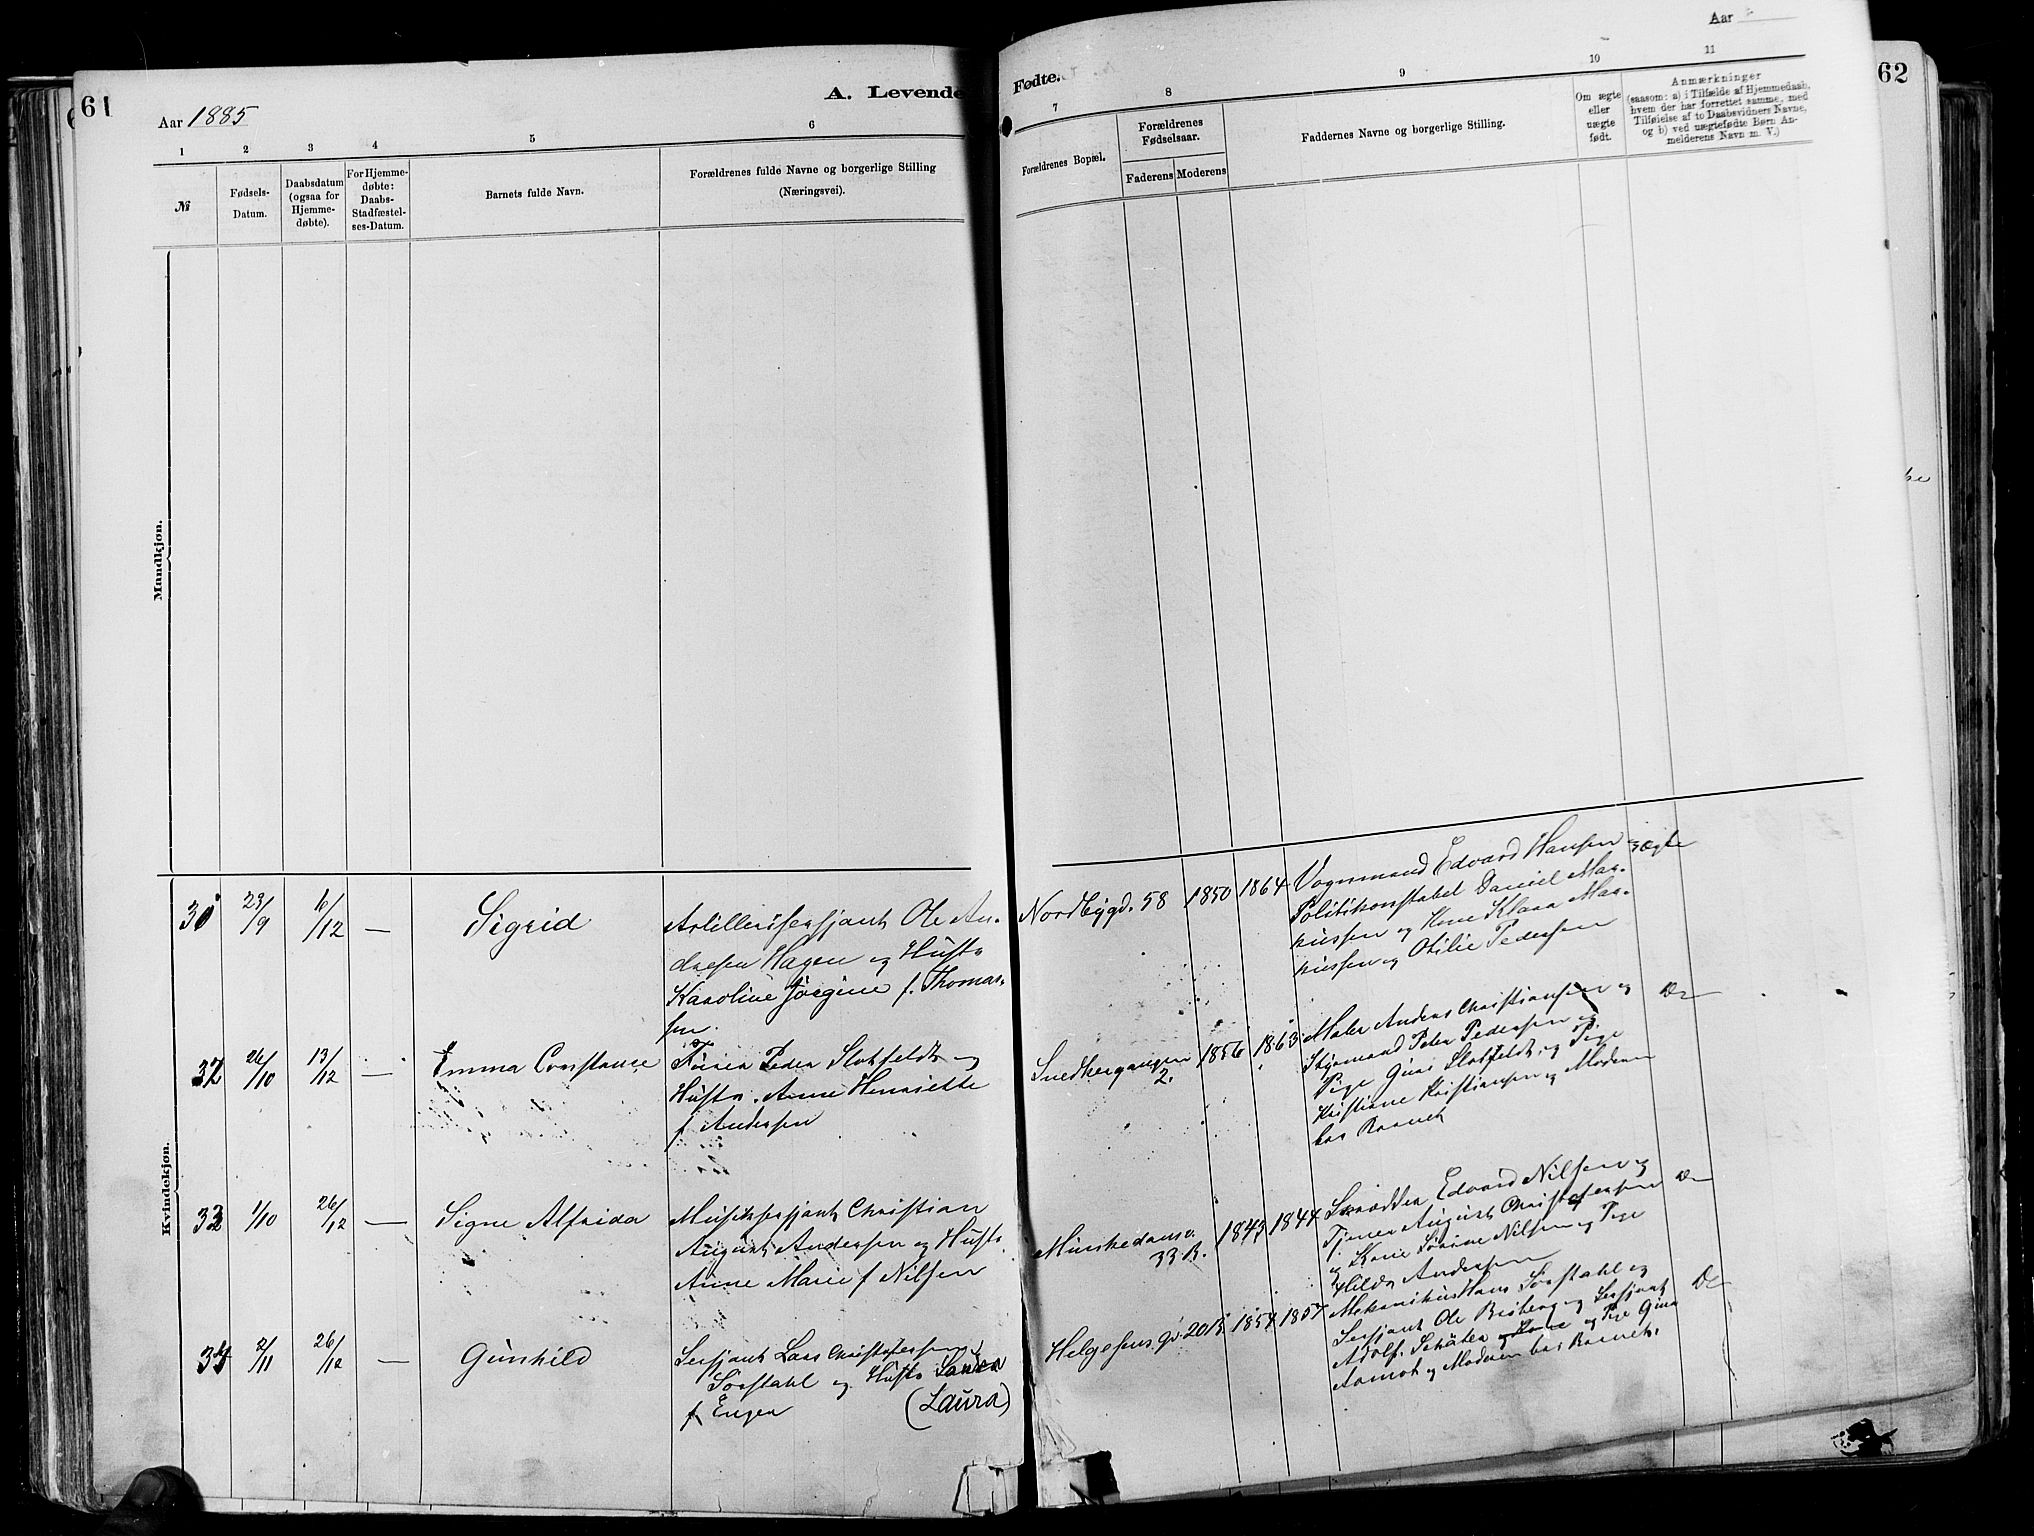 61
Aar 1885
A. Levende
1
2
3
4
5
6
№
Fødsels-
Datum.
Daabsdatum
(ogsaa for
Hjemme-
døbte).
For Hjemme-
døbte:
Daabs-
Stadfæstel-
ses-Datum.
Barnets fulde Navn.
Forældrenes fulde Navne og borgerlige Stilling
(Næringsvei).
Mandkjøn.
Kvindekjøn.
23/9
6/12
—
Sigrid
Artillerisersjant Ole An-
dresen Hagen og Hustr
Karoline Jörgine f. Thomas-
sen.
32
26/10
13/12
—
Emma Constance
Peder Slotfeldt og
Hustr. Anne Henriette
f Andersen
33
1/10
26/12
—
Signe Alfrida
Musiksersjant Christian
August Andersen og Hustr.
Anne Marie f Nilsen
34
2/11
26/12
—
Gunhild
Sersjant Lars Christofersen
Sörstahl og Hustr
f Engen (Laura)
Fødte.
Aar
62
7
8
9
10
11
Forældrenes Bopæl.
Forældrenes
Fødselsaar.
Faderens
Moderens
Faddernes Navne og borgerlige Stilling.
Om ægte
eller
uægte
født.
Anmærkninger
(saasom: a) i Tilfælde af Hjemmedaab,
hvem der har forrettet samme, med
Tilføielse af to Daabsvidners Navne,
og b) ved uægtefødte Børn An-
melderens Navn m. V.)
Nordbygd. 58
1850
1864
Vognmand Edvard Hansen
Politikonstabel Daniel Mar-
kussen og Kone Klara Mar-
kussen og Otilie Pedersen
ægte
Snedkergangen
2.
1856
1863
Maler Anders Christiansen og
Styrmand Peter Pedersen og
Pige Gina Slotfeldt og Pige
Kristiane Kristiansen og Moderen
bar Barnet
Do
Munkedamsv.
33 B.
1843
1844
Skrædder Edvard Nilsen og
Tjener August Christofersen
og Kone Sörine Nilsen og Pige
Hilda Andersen
Do
Helgesens gd. 20 B.
1857
1857
Mekanikus Hans Sörstahl og
Sersjant Ole Broberg og Sersjant
Adolf Schöter og Kone og Pige Gina
Aamot og Moderen bar Barnet.
Do